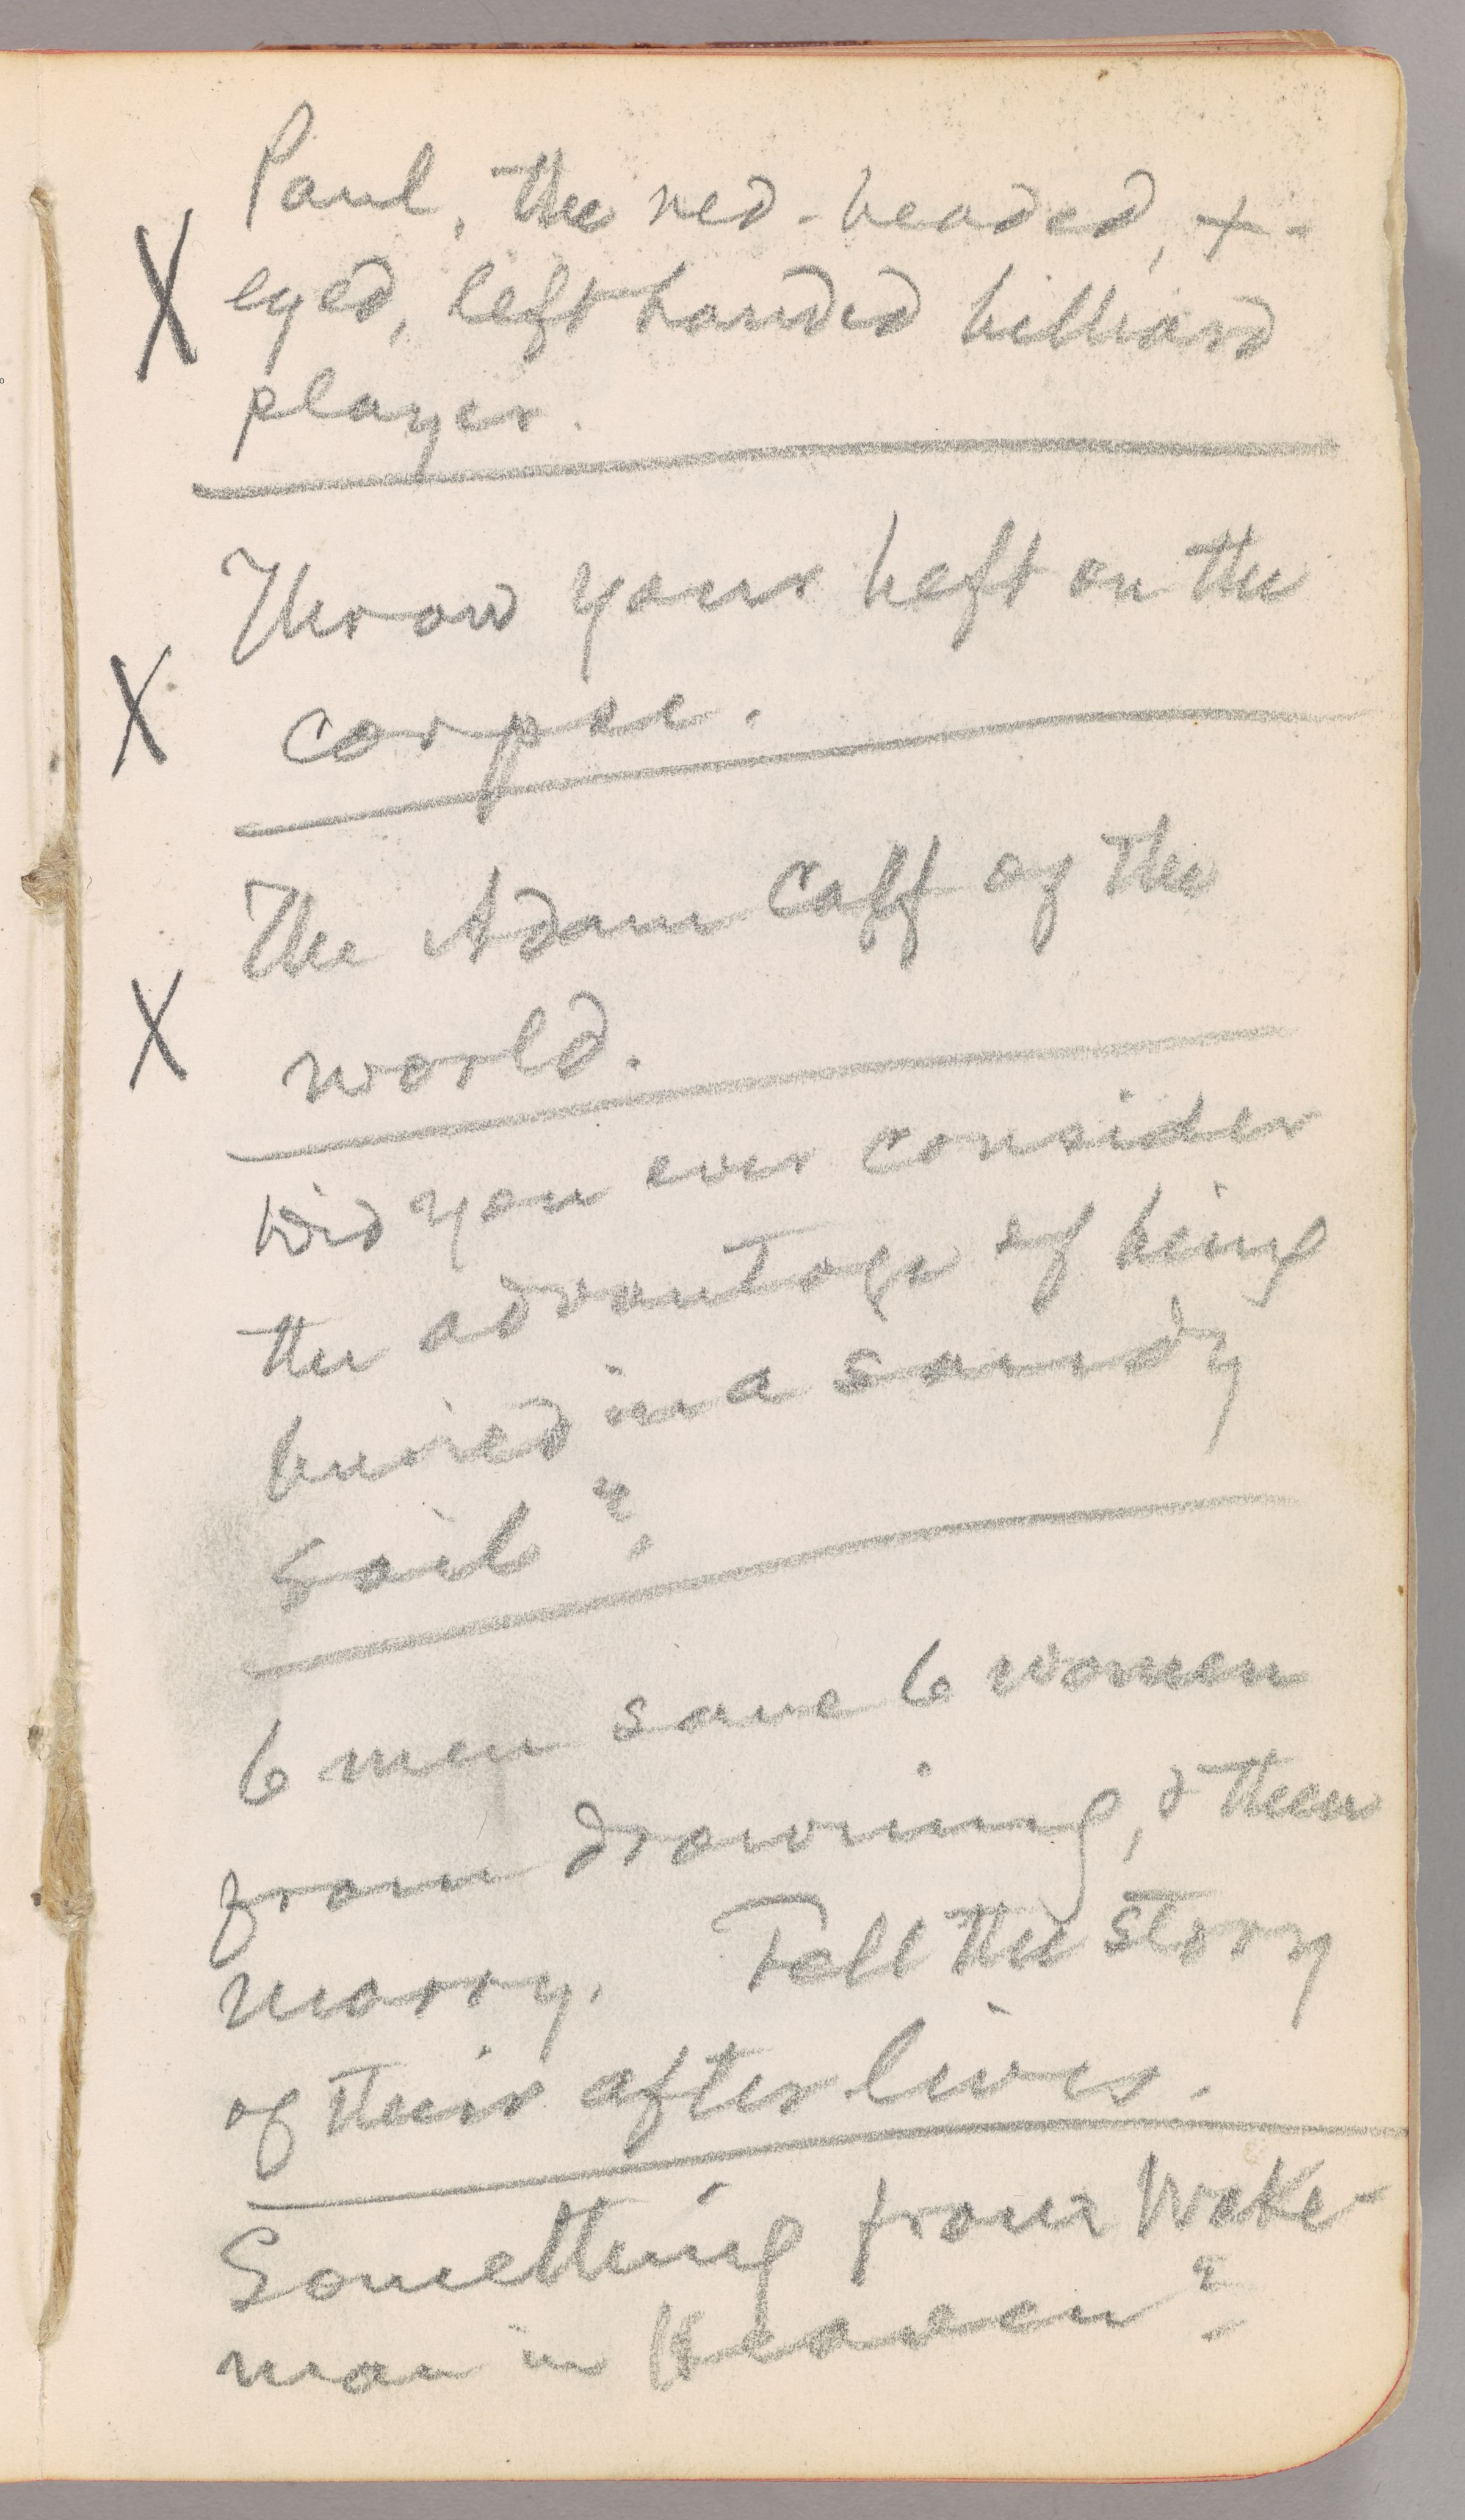 Paul, the red-headed, +-
X eyed, left handed billiard
player.
Throw your heft on the
X corpse.
The Adam Calf of the
X world.
Did you ever consider
the advantage of being
buried in a sandy
soil?
6 men save 6 women
from drowning, & then
marry. Tell the story
of their after lives.
Something from Wake-
man in Heaven?